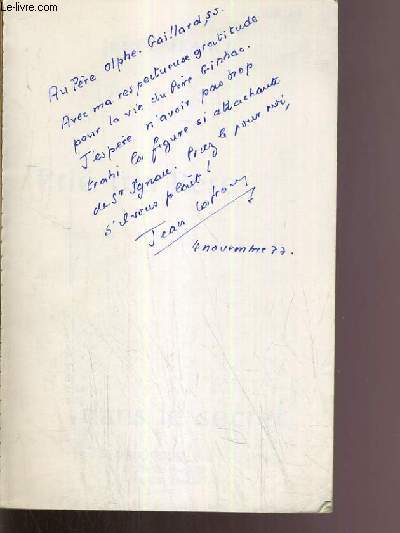 Le-livre.com
Au Père Olphe-Gaillard, s.j.
Avec ma respectueuse gratitude
pour la vie du Père Ginhac.
J'espère n'avoir pas trop
trahi la figure si attachante
de St Ignace. Priez le pour moi,
s'il vous plaît !
Jean
4 novembre 77.
dans le secret